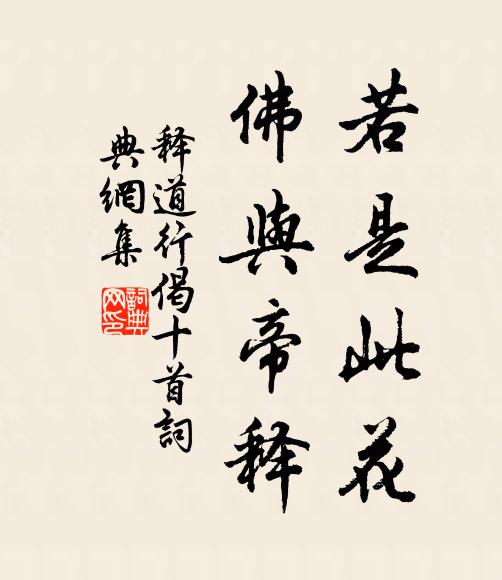 若是此花
佛與帝释
释道行偈十首詞
典網集
詞典网印